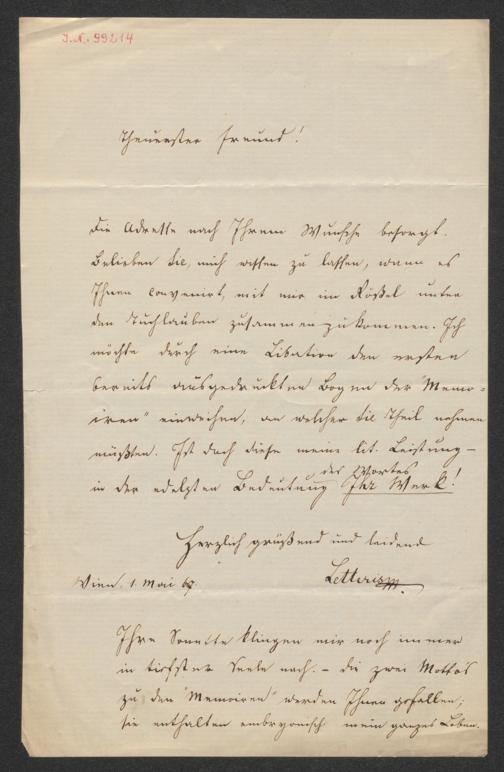 I.N. 99214
Theuerster Freund!
Die Adresse nach Ihrem Wunsche besorgt.
Belieben Sie, mich wissen zu lassen, wann es
Ihnen convenirt, mit mir im Rößel unter
den Tuchlauben zusammenzukommen. Ich
möchte durch eine Libation den ersten
bereits ausgedruckten Bogen der "Memo-
iren" einweihen, an welcher Sie Theil nehmen
müßten. Ist doch diese meine lit. Leistung –
des Wortes
in der edelsten Bedeutung Ihr Werk!
Herzlich grüßend und leidend
Letteris
Wien. 1 Mai 69
Ihre Sonette klingen mir noch immer
in tiefster Seele nach. – Die zwei Motto's
zu den "Memoiren" werden Ihnen gefallen;
sie enthalten embryonisch mein ganzes Leben.